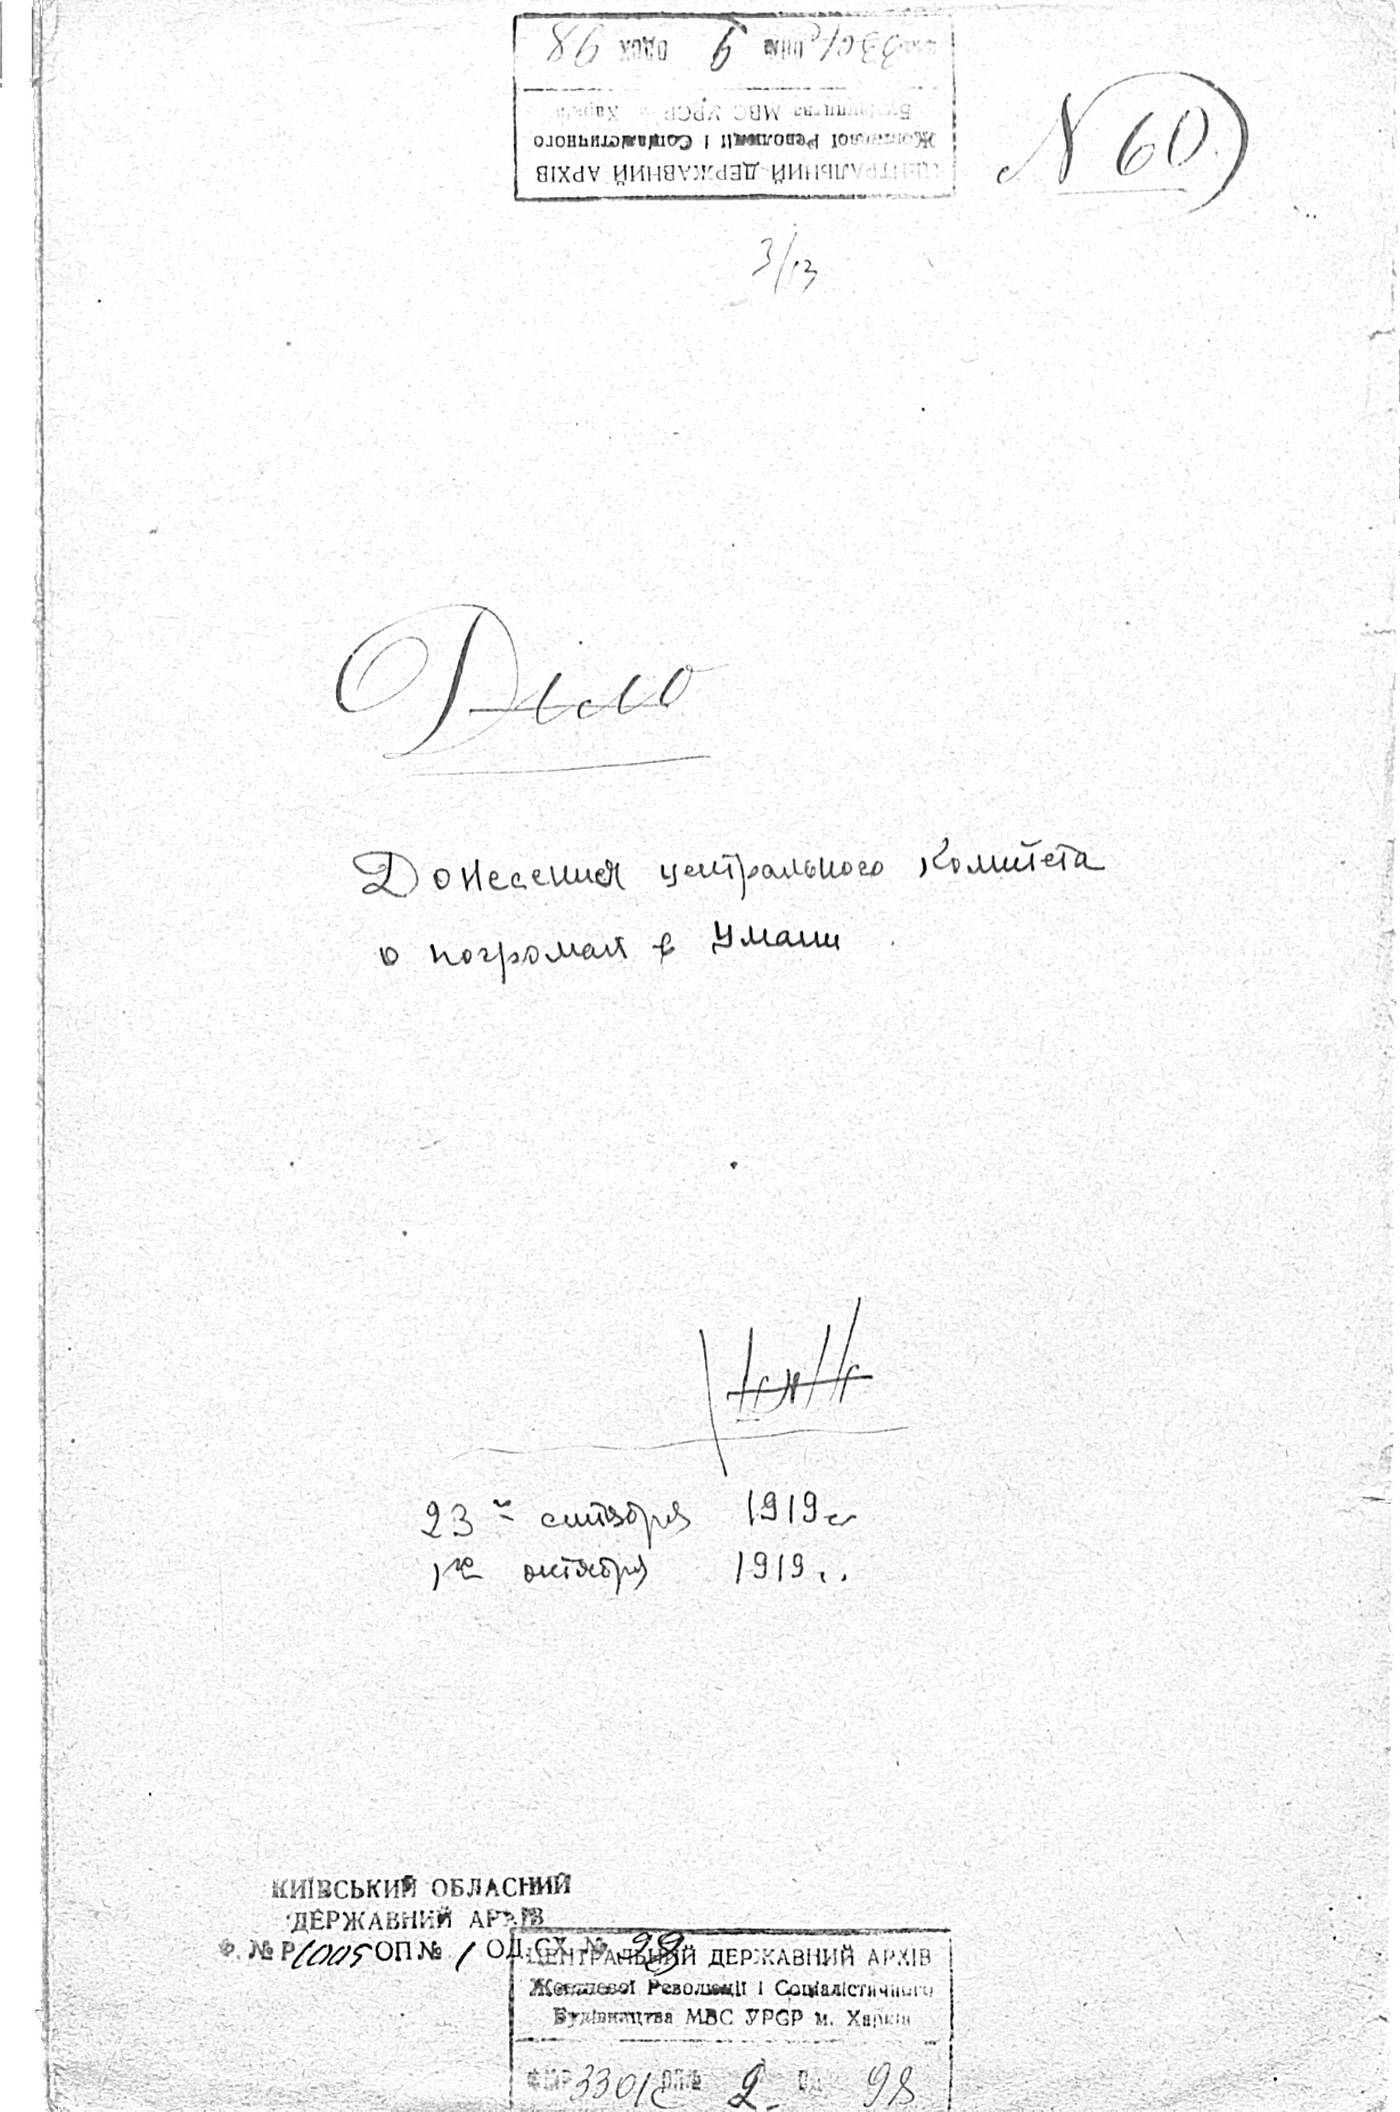 Фонд № 3301с опис 2 одсх 98
Будівництва МВС УРСР м. Харків
Жовтневої Революції і Соціалістичного
ЦЕНТРАЛЬНИЙ ДЕРЖАВНИЙ АРХІВ
N 60)
3/13
Дѣло
Донесения центрального комитета
о погромах в Умани
23го сентября 1919 г
1го октября 1919 г.
КИЇВСЬКИЙ ОБЛАСНИЙ
ДЕРЖАВНИЙ АРХІВ
Ф. № Р 1005 ОП № 1 ОД. СХ. №
ЦЕНТРАЛЬНИЙ ДЕРЖАВНИЙ АРХІВ
Жовтневої Революції і Соціалістичного
Будівництва МВС УРСР м. Харків
3301с 2 98